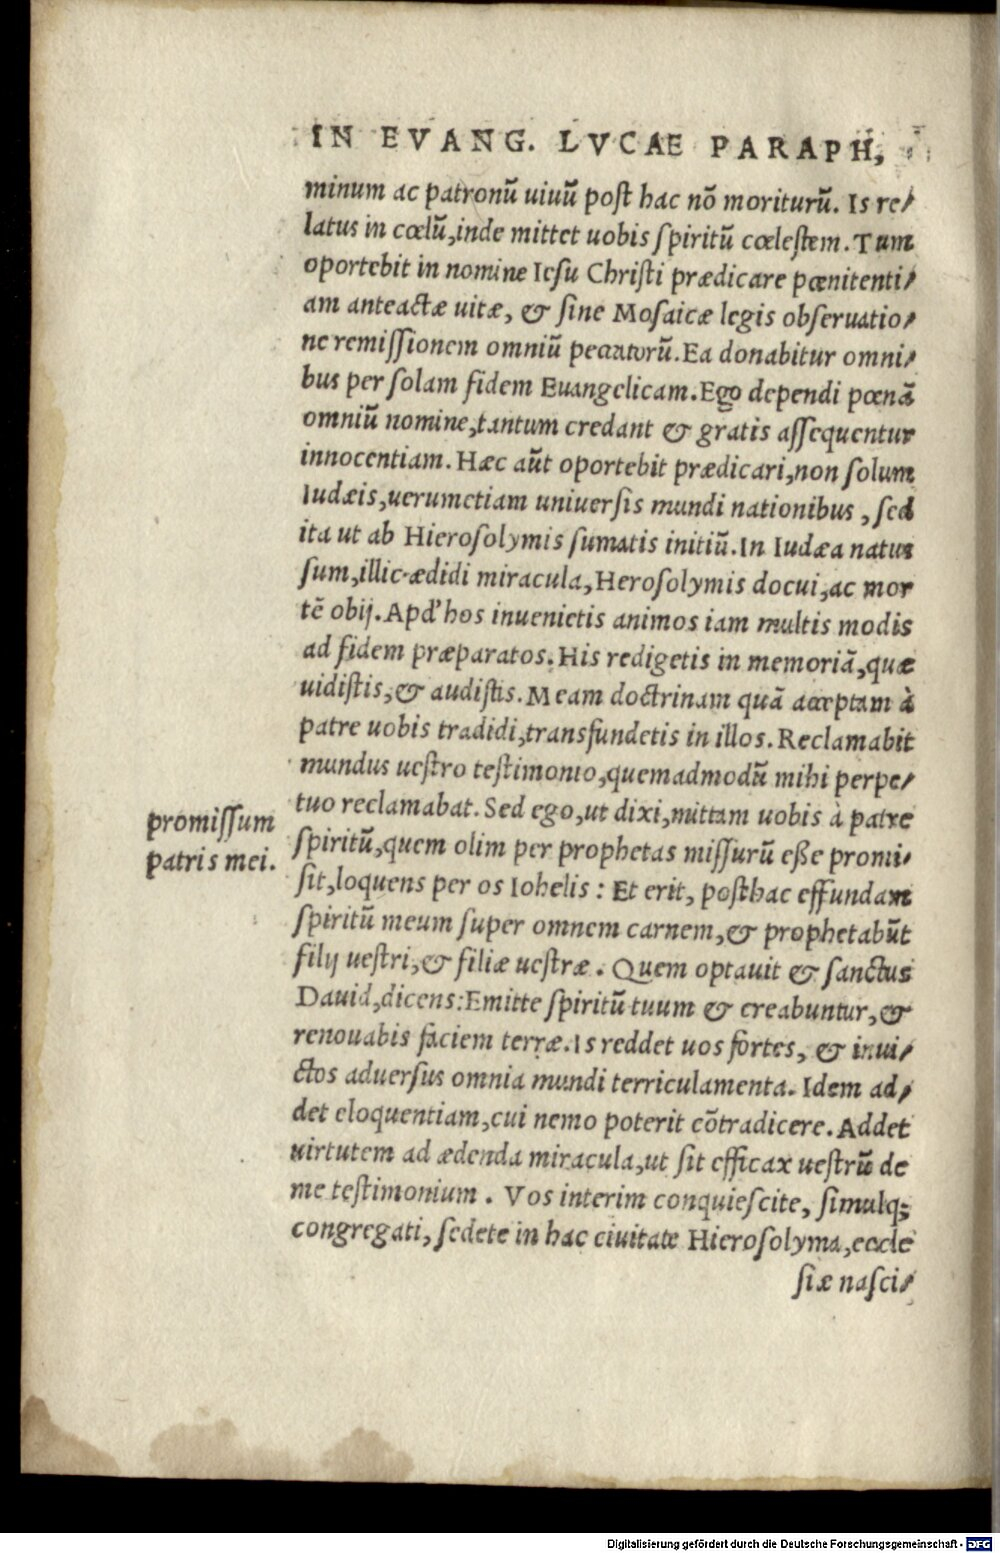 IN EVANG. LVCAE PARAPH,
minum ac patronũ uiuũ post hac nõ moriturũ. Is re/
latus in cœlũ, inde mittet uobis spiritũ cœlestem. Tum
oportebit in nomine Iesu Christi prædicare pœnitenti/
am anteactæ uitæ, & sine Mosaicæ legis obseruatio/
ne remissionem omniũ peccatorũ. Ea donabitur omni/
bus per solam fidem Euangelicam. Ego dependi pœnã
omniũ nomine, tantum credant & gratis assequentur
innocentiam. Hæc aũt oportebit prædicari, non solum
Iudæis, uerumetiam uniuersis mundi nationibus, sed
ita ut ab Hierosolymis sumatis initiũ. In Iudæa natus
sum, illic ædidi miracula, Herosolymis docui, ac mor
tẽ obij. Apd' hos inuenietis animos iam multis modis
ad fidem præparatos. His redigetis in memoriã, quæ
uidistis, & audistis. Meam doctrinam quã acceptam à
patre uobis tradidi, transfundetis in illos. Reclamabit
mundus uestro testimonio, quemadmodũ mihi perpe/
tuo reclamabat. Sed ego, ut dixi, mittam uobis à patre
promissum
patris mei.
spiritũ, quem olim per prophetas missurũ esse promi/
sit, loquens per os Iohelis: Et erit, posthac effundam
spiritũ meum super omnem carnem, & prophetabũt
filij uestri, & filiæ uestræ. Quem optauit & sanctus
Dauid, dicens: Emitte spiritũ tuum & creabuntur, &
renouabis faciem terræ. Is reddet uos fortes, & inui/
ctos aduersus omnia mundi terriculamenta. Idem ad/
det eloquentiam, cui nemo poterit cõtradicere. Addet
uirtutem ad ædenda miracula, ut sit efficax uestrũ de
me testimonium. Vos interim conquiescite, simulq;
congregati, sedete in hac ciuitate Hierosolyma, eccle
siæ nasci/
Digitalisierung gefördert durch die Deutsche Forschungsgemeinschaft - DFG